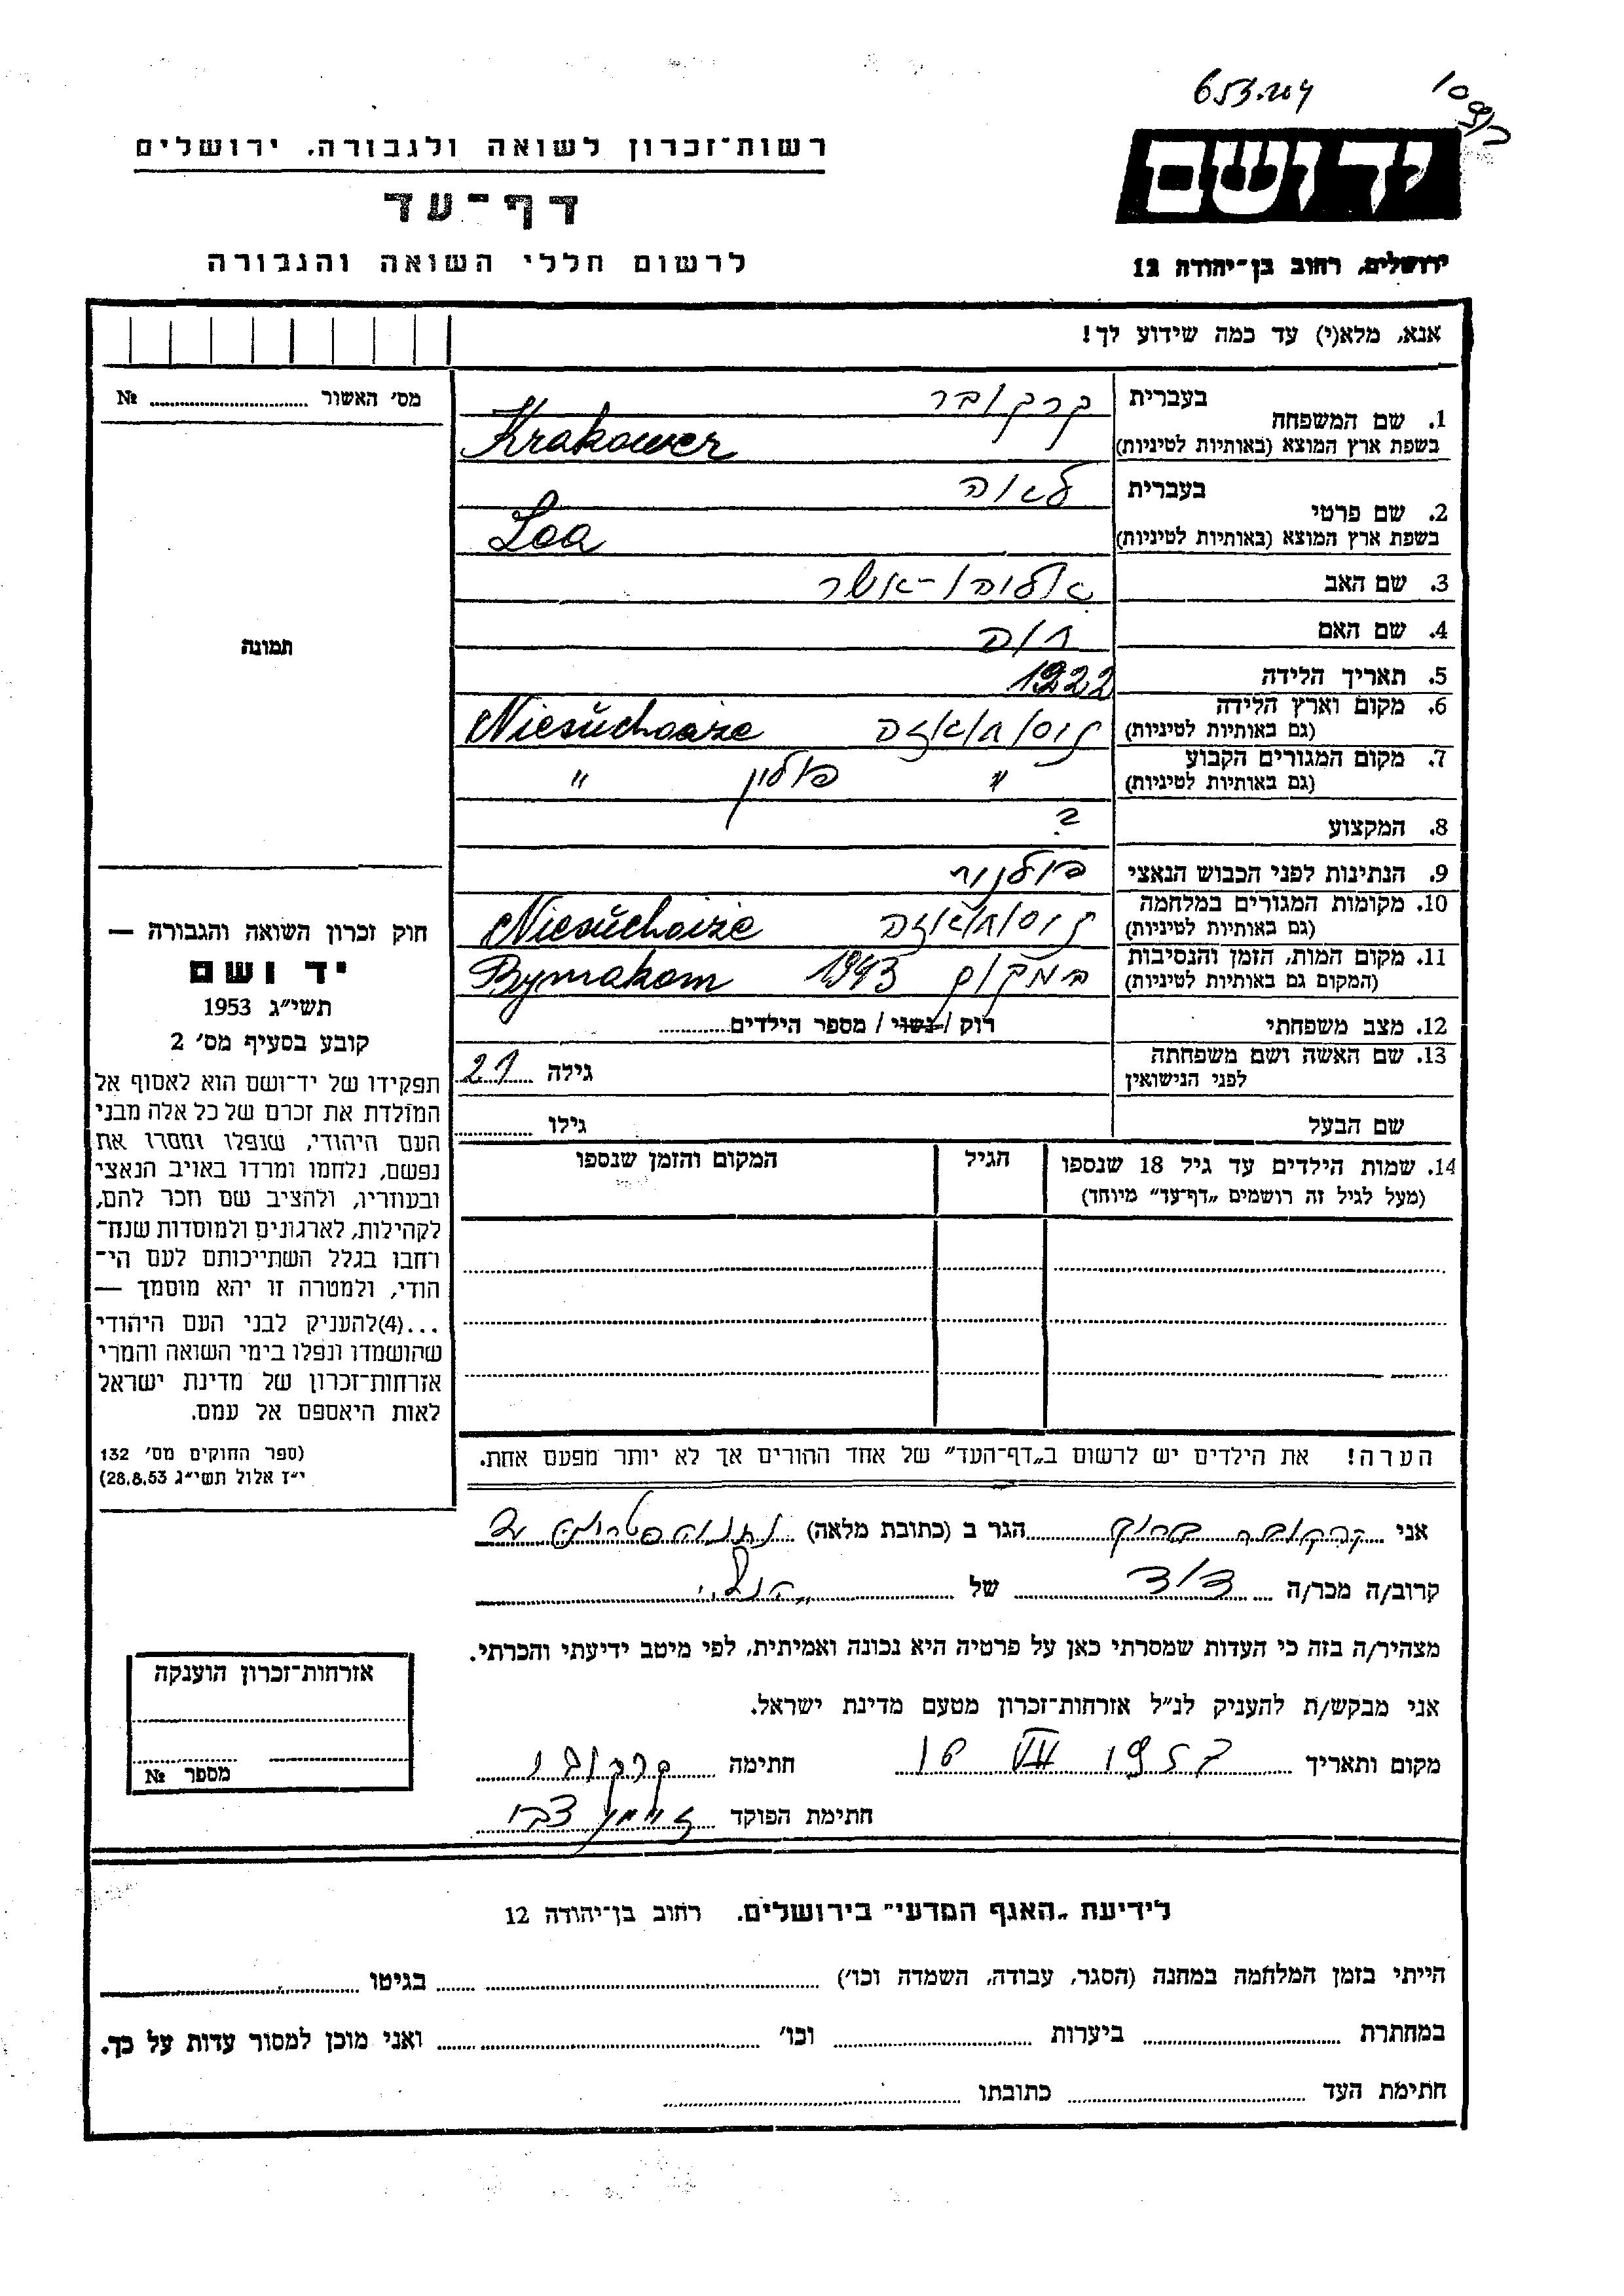 653.204
רשות־זכרון לשואה ולגבורה, ירושלים
דף־עד
לרשום חללי השואה והגבורה
יד ושם
ירושלים, רחוב בן־יהודה 12
אנא, מלא(י) עד כמה שידוע לך!
מס׳ האשור № 
תמונה
1. שם המשפחה
בעברית קרקובר
בשפת ארץ המוצא (באותיות לטיניות) Krakower
2. שם פרטי
בעברית לאה
בשפת ארץ המוצא (באותיות לטיניות) Loa
3. שם האב אשר
4. שם האם חוה
5. תאריך הלידה 1922
6. מקום וארץ הלידה
(גם באותיות לטיניות) Niesuchoiże
7. מקום המגורים הקבוע
(גם באותיות לטיניות) ״ פולין ״
8. המקצוע ?
9. הנתינות לפני הכבוש הנאצי
10. מקומות המגורים במלחמה
(גם באותיות לטיניות) Niesuchoiże
11. מקום המות, הזמן והנסיבות
(המקום גם באותיות לטיניות) במקום 1943 Bymakom
12. מצב משפחתי רוק / נשוי / מספר הילדים
13. שם האשה ושם משפחתה
לפני הנישואין גילה 21
שם הבעל גילו
14. שמות הילדים עד גיל 18 שנספו
(מעל לגיל זה רושמים „דף־עד״ מיוחד)
הגיל
המקום והזמן שנספו
חוק זכרון השואה והגבורה —
יד ושם
תשי״ג 1953
קובע בסעיף מס׳ 2
תפקידו של יד־ושם הוא לאסוף אל
המולדת את זכרם של כל אלה מבני
העם היהודי, שנפלו ומסרו את
נפשם, נלחמו ומרדו באויב הנאצי
ובעוזריו, ולהציב שם וזכר להם,
לקהילות, לארגונים ולמוסדות שנח־
רחבו בגלל השתייכותם לעם הי־
הודי, ולמטרה זו יהא מוסמך —
...(4)להעניק לבני העם היהודי
שהושמדו ונפלו בימי השואה והמרי
אזרחות־זכרון של מדינת ישראל
לאות היאספם אל עמם.
(ספר החוקים מס׳ 132
י״ז אלול תשי״ג 28.8.53)
הערה! את הילדים יש לרשום ב„דף־העד״ של אחד ההורים אך לא יותר מפעם אחת.
אני קרקובר ברוך הגר ב (כתובת מלאה)
קרוב/ה מכר/ה דוד של הנ״ל
מצהיר/ה בזה כי העדות שמסרתי כאן על פרטיה היא נכונה ואמיתית, לפי מיטב ידיעתי והכרתי.
אני מבקש/ת להעניק לנ״ל אזרחות־זכרון מטעם מדינת ישראל.
מקום ותאריך 16 VII 1957 חתימה
חתימת הפוקד
אזרחות־זכרון הוענקה
מספר №
לידיעת „האגף המדעי״ בירושלים, רחוב בן־יהודה 12
הייתי בזמן המלחמה במחנה (הסגר, עבודה, השמדה וכו׳) בגיטו
במחתרת ביערות וכו׳ ואני מוכן למסור עדות על כך.
חתימת העד כתובתו